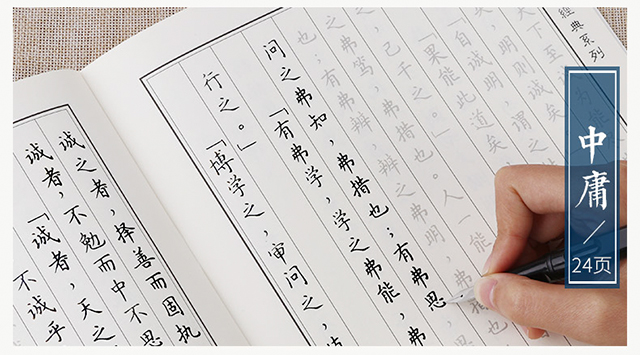 經典系列
天下至诚
矣,明则诚
「自诚明,谓之
果能此道矣
己千之。」
弗笃,弗措也。人一能
也;有弗辨,辨之弗明,弗
问之弗知,弗措也;有弗思
「有弗学,学之弗能,弗
行之。」
「博学之,审问之,
诚之者,择善而固执
诚者,不勉而中不思
「诚者,天之
不诚乎
中庸
24页